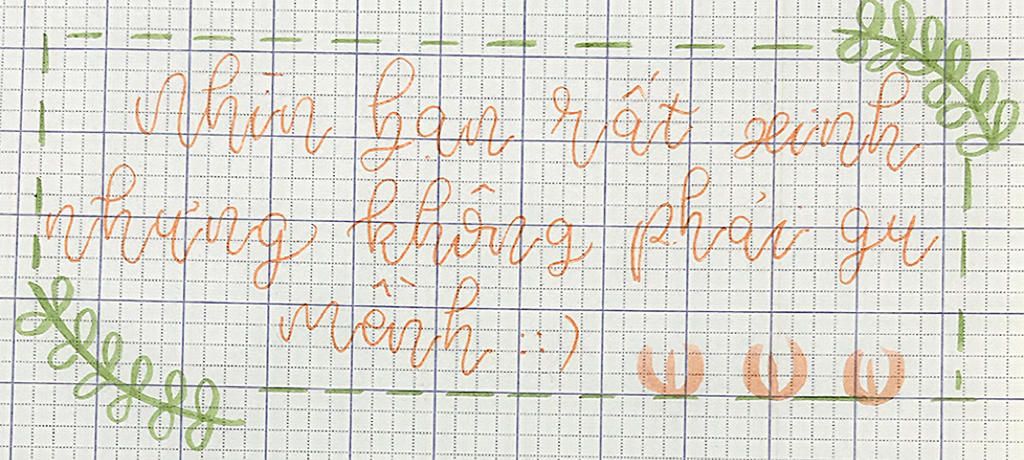 Nhìn bạn rất xinh
nhưng không phải gu
mềnh ::)